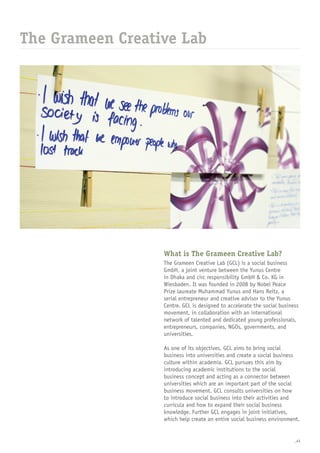 The Grameen Creative Lab
· I wish that we see the problems our
society is facing.
· I wish that we empower people who
lost track
What is The Grameen Creative Lab?
The Grameen Creative Lab (GCL) is a social business
GmbH, a joint venture between the Yunus Centre
in Dhaka and circ responsibility GmbH & Co. KG in
Wiesbaden. It was founded in 2008 by Nobel Peace
Prize laureate Muhammad Yunus and Hans Reitz, a
serial entrepreneur and creative advisor to the Yunus
Centre. GCL is designed to accelerate the social business
movement, in collaboration with an international
network of talented and dedicated young professionals,
entrepreneurs, companies, NGOs, governments, and
universities.
As one of its objectives, GCL aims to bring social
business into universities and create a social business
culture within academia. GCL pursues this aim by
introducing academic institutions to the social
business concept and acting as a connector between
universities which are an important part of the social
business movement. GCL consults universities on how
to introduce social business into their activities and
curricula and how to expand their social business
knowledge. Further GCL engages in joint initiatives,
which help create an entire social business environment.